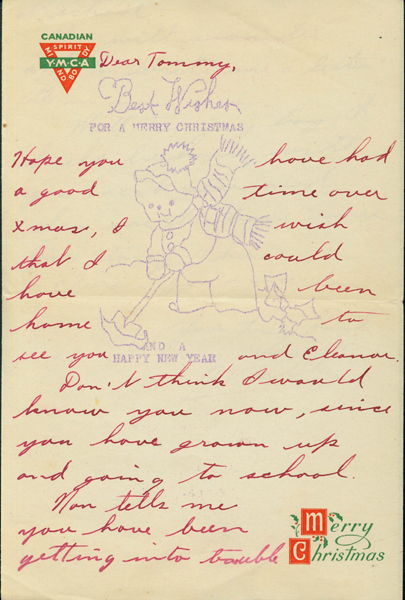 CANADIAN
SPIRIT
Y·M·C·A
MIND
BODY
Dear Tommy,
Best Wishes
FOR A MERRY CHRISTMAS
Hope you have had
a good time over
xmas, I wish
that I could
have been
home to
AND A
see you and Eleanor.
HAPPY NEW YEAR
Don't think I would
know you now, since
you have grown up
and going to school.
Non tells me
you have been
getting into trouble
Merry
Christmas